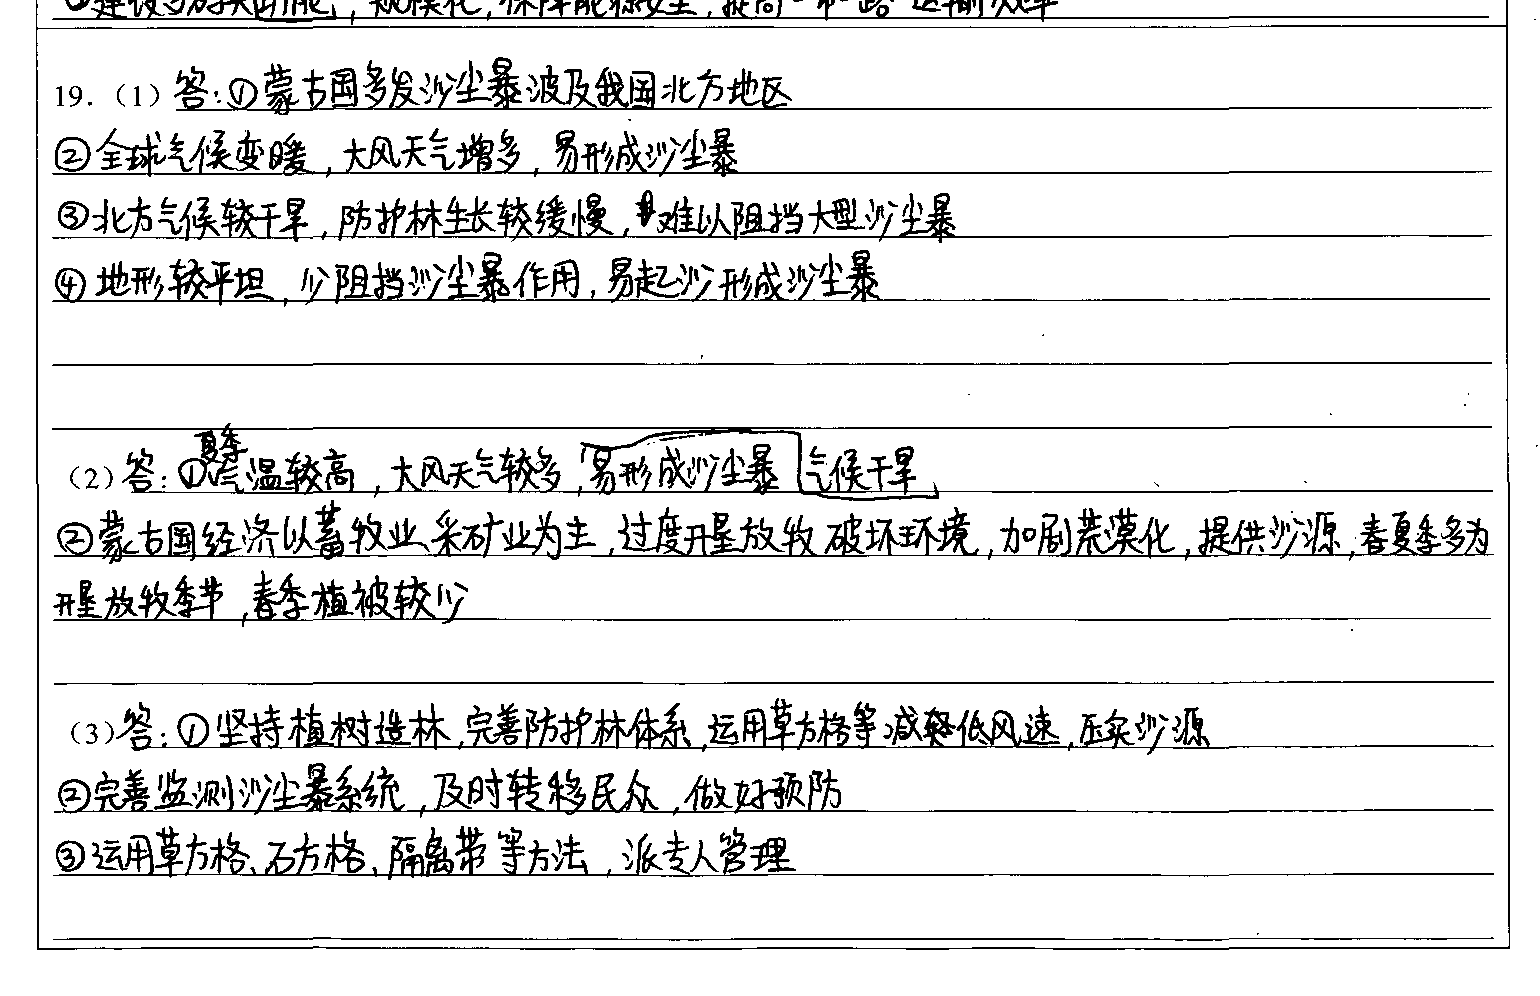 建设多
19.（1）答：①蒙古国多发沙尘暴波及我国北方地区
②全球气候变暖，大风天气增多，易形成沙尘暴
③北方气候较干旱，防护林生长较缓慢，难以阻挡大型沙尘暴
④地形较平坦，少阻挡沙尘暴作用，易起沙形成沙尘暴
夏季
（2）答：①气温较高，大风天气较多，易形成沙尘暴 气候干旱
②蒙古国经济以畜牧业、采矿业为主，过度开垦放牧破坏环境，加剧荒漠化，提供沙源，春夏季多为
开垦放牧季节，春季植被较少
（3）答：①坚持植树造林，完善防护林体系，运用草方格等减轻低风速，压实沙源
②完善监测沙尘暴系统，及时转移民众，做好预防
③运用草方格、石方格、隔离带等方法，派专人管理